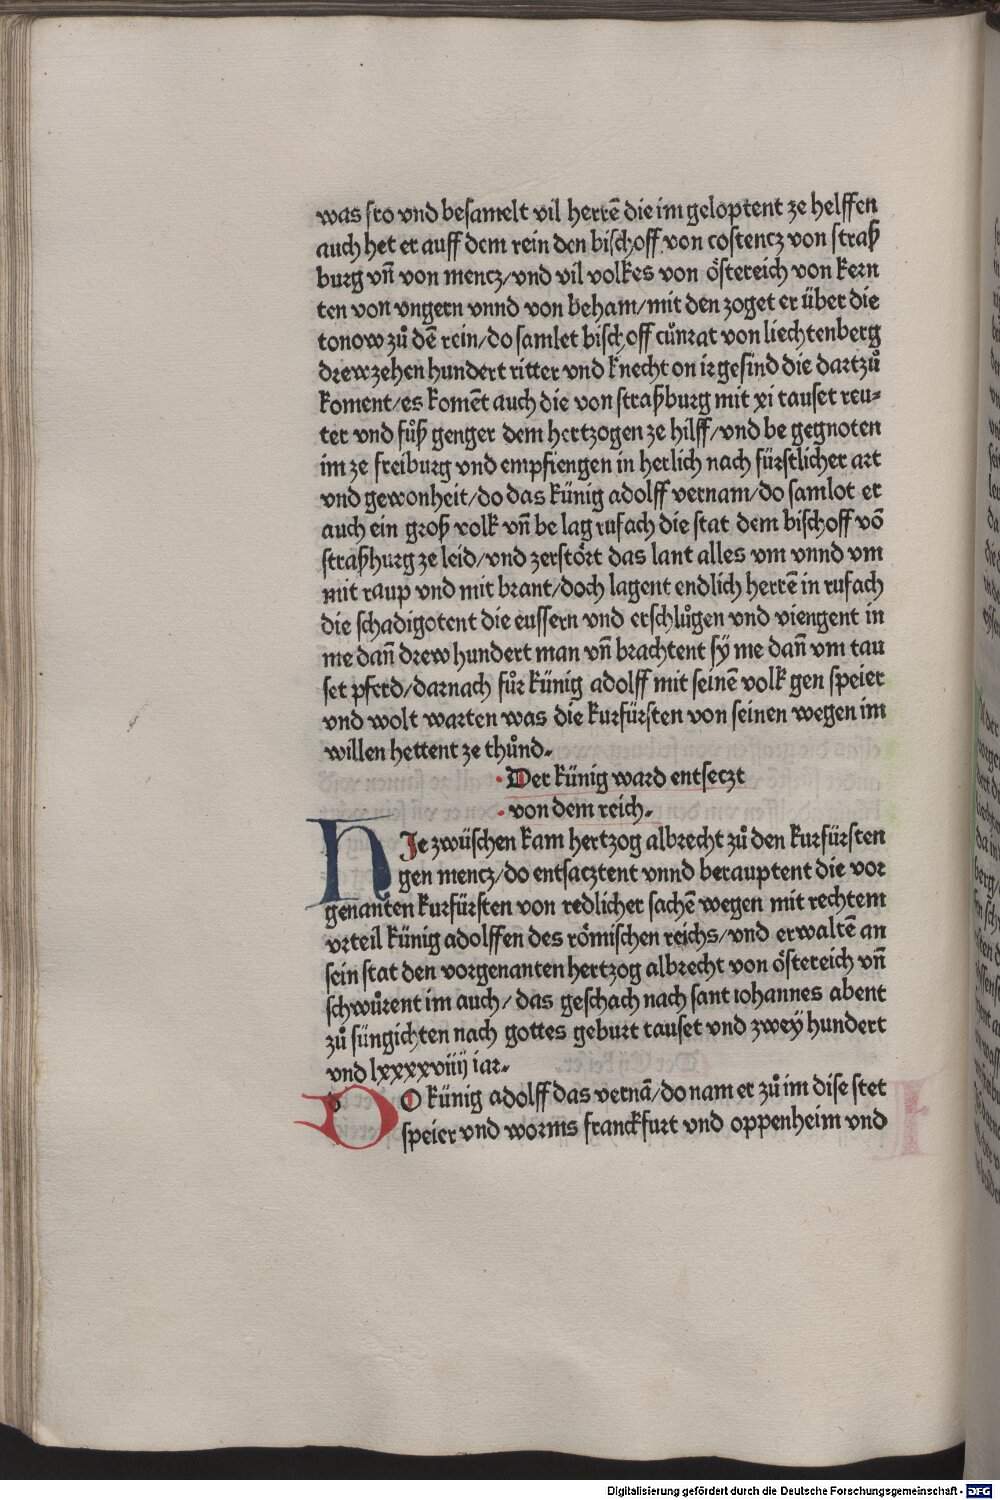 was fro vnd besamelt vil herrē die im geloptent ze helffen
auch het er auff dem rein den bischoff von costencz von straß
burg vn̄ von mencz/vnd vil volkes von öſtereich von kern
ten von vngern vnnd von beham/mit den zoget er über die
tonow zů dē rein/do samlet bischoff cůnrat von liechtenberg
drewzehen hundert ritter vnd knecht on ir gesind die dartzů
koment/es komēt auch die von straßburg mit xi tauset reu⸗
ter vnd fůß genger dem hertzogen ze hilff/vnd be gegnoten
im ze freiburg vnd empfiengen in herlich nach fürstlicher art
vnd gewonheit/do das künig adolff vernam/do samlot er
auch ein groß volk vn̄ be lag rufach die stat dem bischoff vō
straßburg ze leid/vnd zerstört das lant alles vm vnnd vm
mit raup vnd mit brant/doch lagent endlich herrē in rufach
die schadigotent die eussern vnd erschlůgen vnd viengent in
me dan̄ drew hundert man vn̄ brachtent sÿ me dan̄ vm tau
set pferd/darnach fůr künig adolff mit seinē volk gen speier
vnd wolt warten was die kurfürsten von seinen wegen im
willen hettent ze thůnd.
Der künig ward entseczt
von dem reich.
HJe zwüschen kam hertzog albrecht zů den kurfürsten
gen mencz/do entsacztent vnnd beraupten̄t die vor
genanten kurfürsten von redlicher sachē wegen mit rechtem
vrteil künig adolffen des römischen reichs/vnd erwaltē an
sein stat den vorgenanten hertzog albrecht von öſtereich vn̄
schwůrent im auch/das geschach nach sant iohannes abent
zů süngichten nach gottes geburt tauset vnd zweÿ hundert
vnd lxxxxviiij iar.
DO künig adolff das vernā/do nam er zů im dise stet
speier vnd worms franckfurt vnd oppenheim vnd
Digitalisierung gefördert durch die Deutsche Forschungsgemeinschaft - DFG